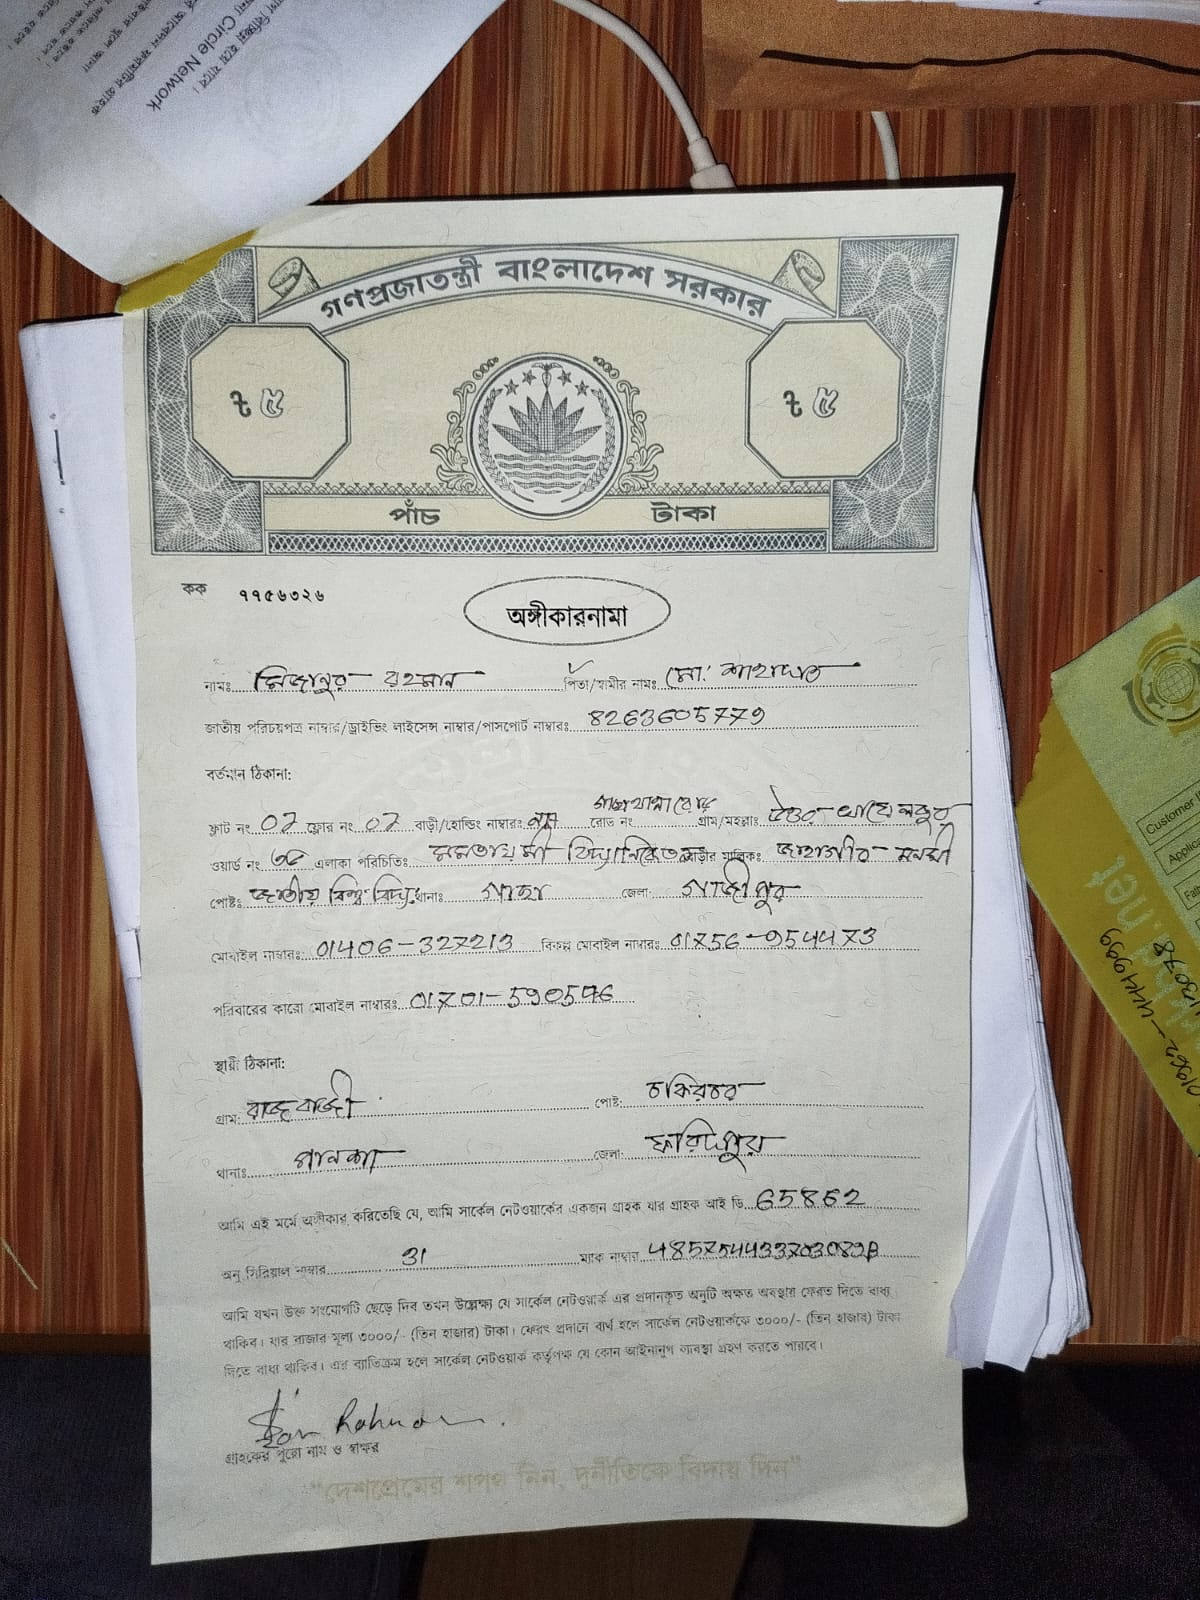 Circle Network
গণপ্রজাতন্ত্রী বাংলাদেশ সরকার
৳ ৫ ৳ ৫
পাঁচ টাকা
কক ৭৭৫৬৩২৬
অঙ্গীকারনামা
নামঃ মিজানুর রহমান পিতা/স্বামীর নামঃ মো: শাহাদাত
জাতীয় পরিচয়পত্র নাম্বার/ড্রাইভিং লাইসেন্স নাম্বার/পাসপোর্ট নাম্বারঃ 8263605779
বর্তমান ঠিকানা:
ফ্লাট নং 07 ফ্লোর নং 07 বাড়ী/হোল্ডিং নাম্বারঃ রোড নং গ্রাম/মহল্লাঃ উত্তর
ওয়ার্ড নং এলাকা পরিচিতিঃ মমতাময়ী বিদ্যানিকেতন বাড়ীর মালিকঃ জাহাঙ্গীর
পোষ্টঃ জাতীয় বিশ্ব বিদ্যাঃ থানাঃ গাছা জেলা: গাজীপুর
মোবাইল নাম্বারঃ 01406-327213 বিকল্প মোবাইল নাম্বারঃ 01756-954473
পরিবারের কারো মোবাইল নাম্বারঃ 01701-590596
স্থায়ী ঠিকানা:
গ্রাম: রাজবাড়ী পোষ্ট:
থানাঃ পানশা জেলা: ফরিদপুর
আমি এই মর্মে অঙ্গীকার করিতেছি যে, আমি সার্কেল নেটওয়ার্কের একজন গ্রাহক যার গ্রাহক আই ডি 65862
অনু সিরিয়াল নাম্বার 31 ম্যাক নাম্বার
আমি যখন উক্ত সংযোগটি ছেড়ে দিব তখন উল্লেক্ষ্য যে সার্কেল নেটওয়ার্ক এর প্রদানকৃত অনুটি অক্ষত অবস্থায় ফেরত দিতে বাধ্য
থাকিব। যার বাজার মূল্য ৩০০০/- (তিন হাজার) টাকা। ফেরৎ প্রদানে ব্যর্থ হলে সার্কেল নেটওয়ার্ককে ৩০০০/- (তিন হাজার) টাকা
দিতে বাধ্য থাকিব। এর ব্যতিক্রম হলে সার্কেল নেটওয়ার্ক কর্তৃপক্ষ যে কোন আইনানুগ ব্যবস্থা গ্রহণ করতে পারবে।
Rahman
গ্রাহকের পুরো নাম ও স্বাক্ষর
"দেশপ্রেমের শপথ নিন, দুর্নীতিকে বিদায় দিন"
Customer
.net